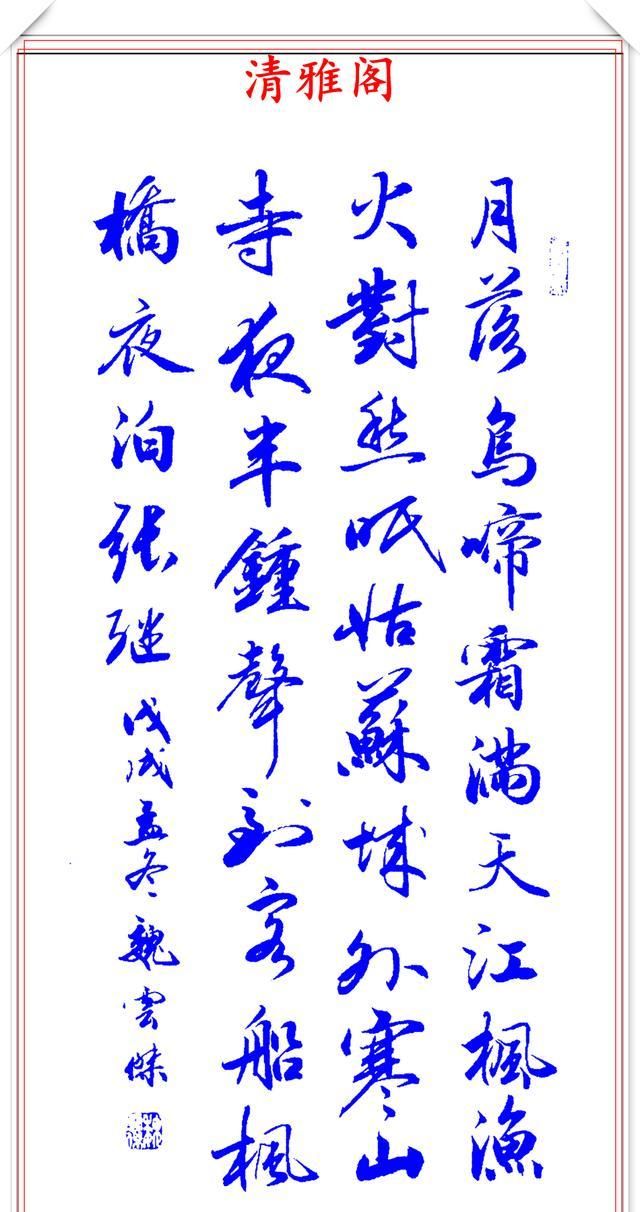 清雅阁
月落烏啼霜滿天江楓漁
火對愁眠姑蘇城外寒山
寺夜半鍾聲到客船楓
橋夜泊张继戊戌孟冬魏雲傑